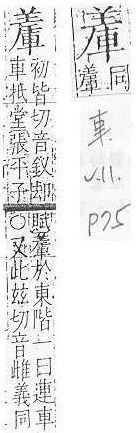 䡨
初皆切音釵却
車抵堂張平子
賦䡨於東階一曰連車
○又此兹切音雌義同
同
車
v.11.
P75